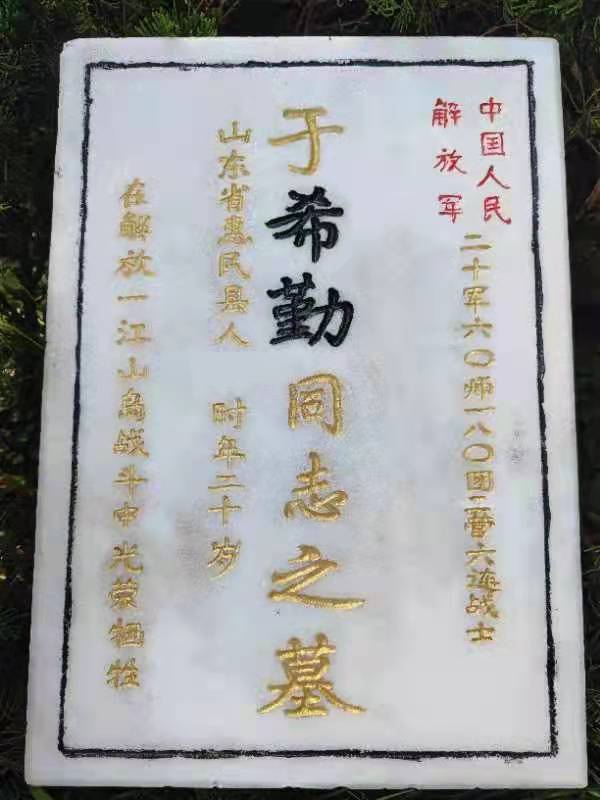 中国人民
解放军
二十军六〇师一八〇团二营六连战士
于希勤同志之墓
山东省惠民县人 时年二十岁
在解放一江山岛战斗中光荣牺牲